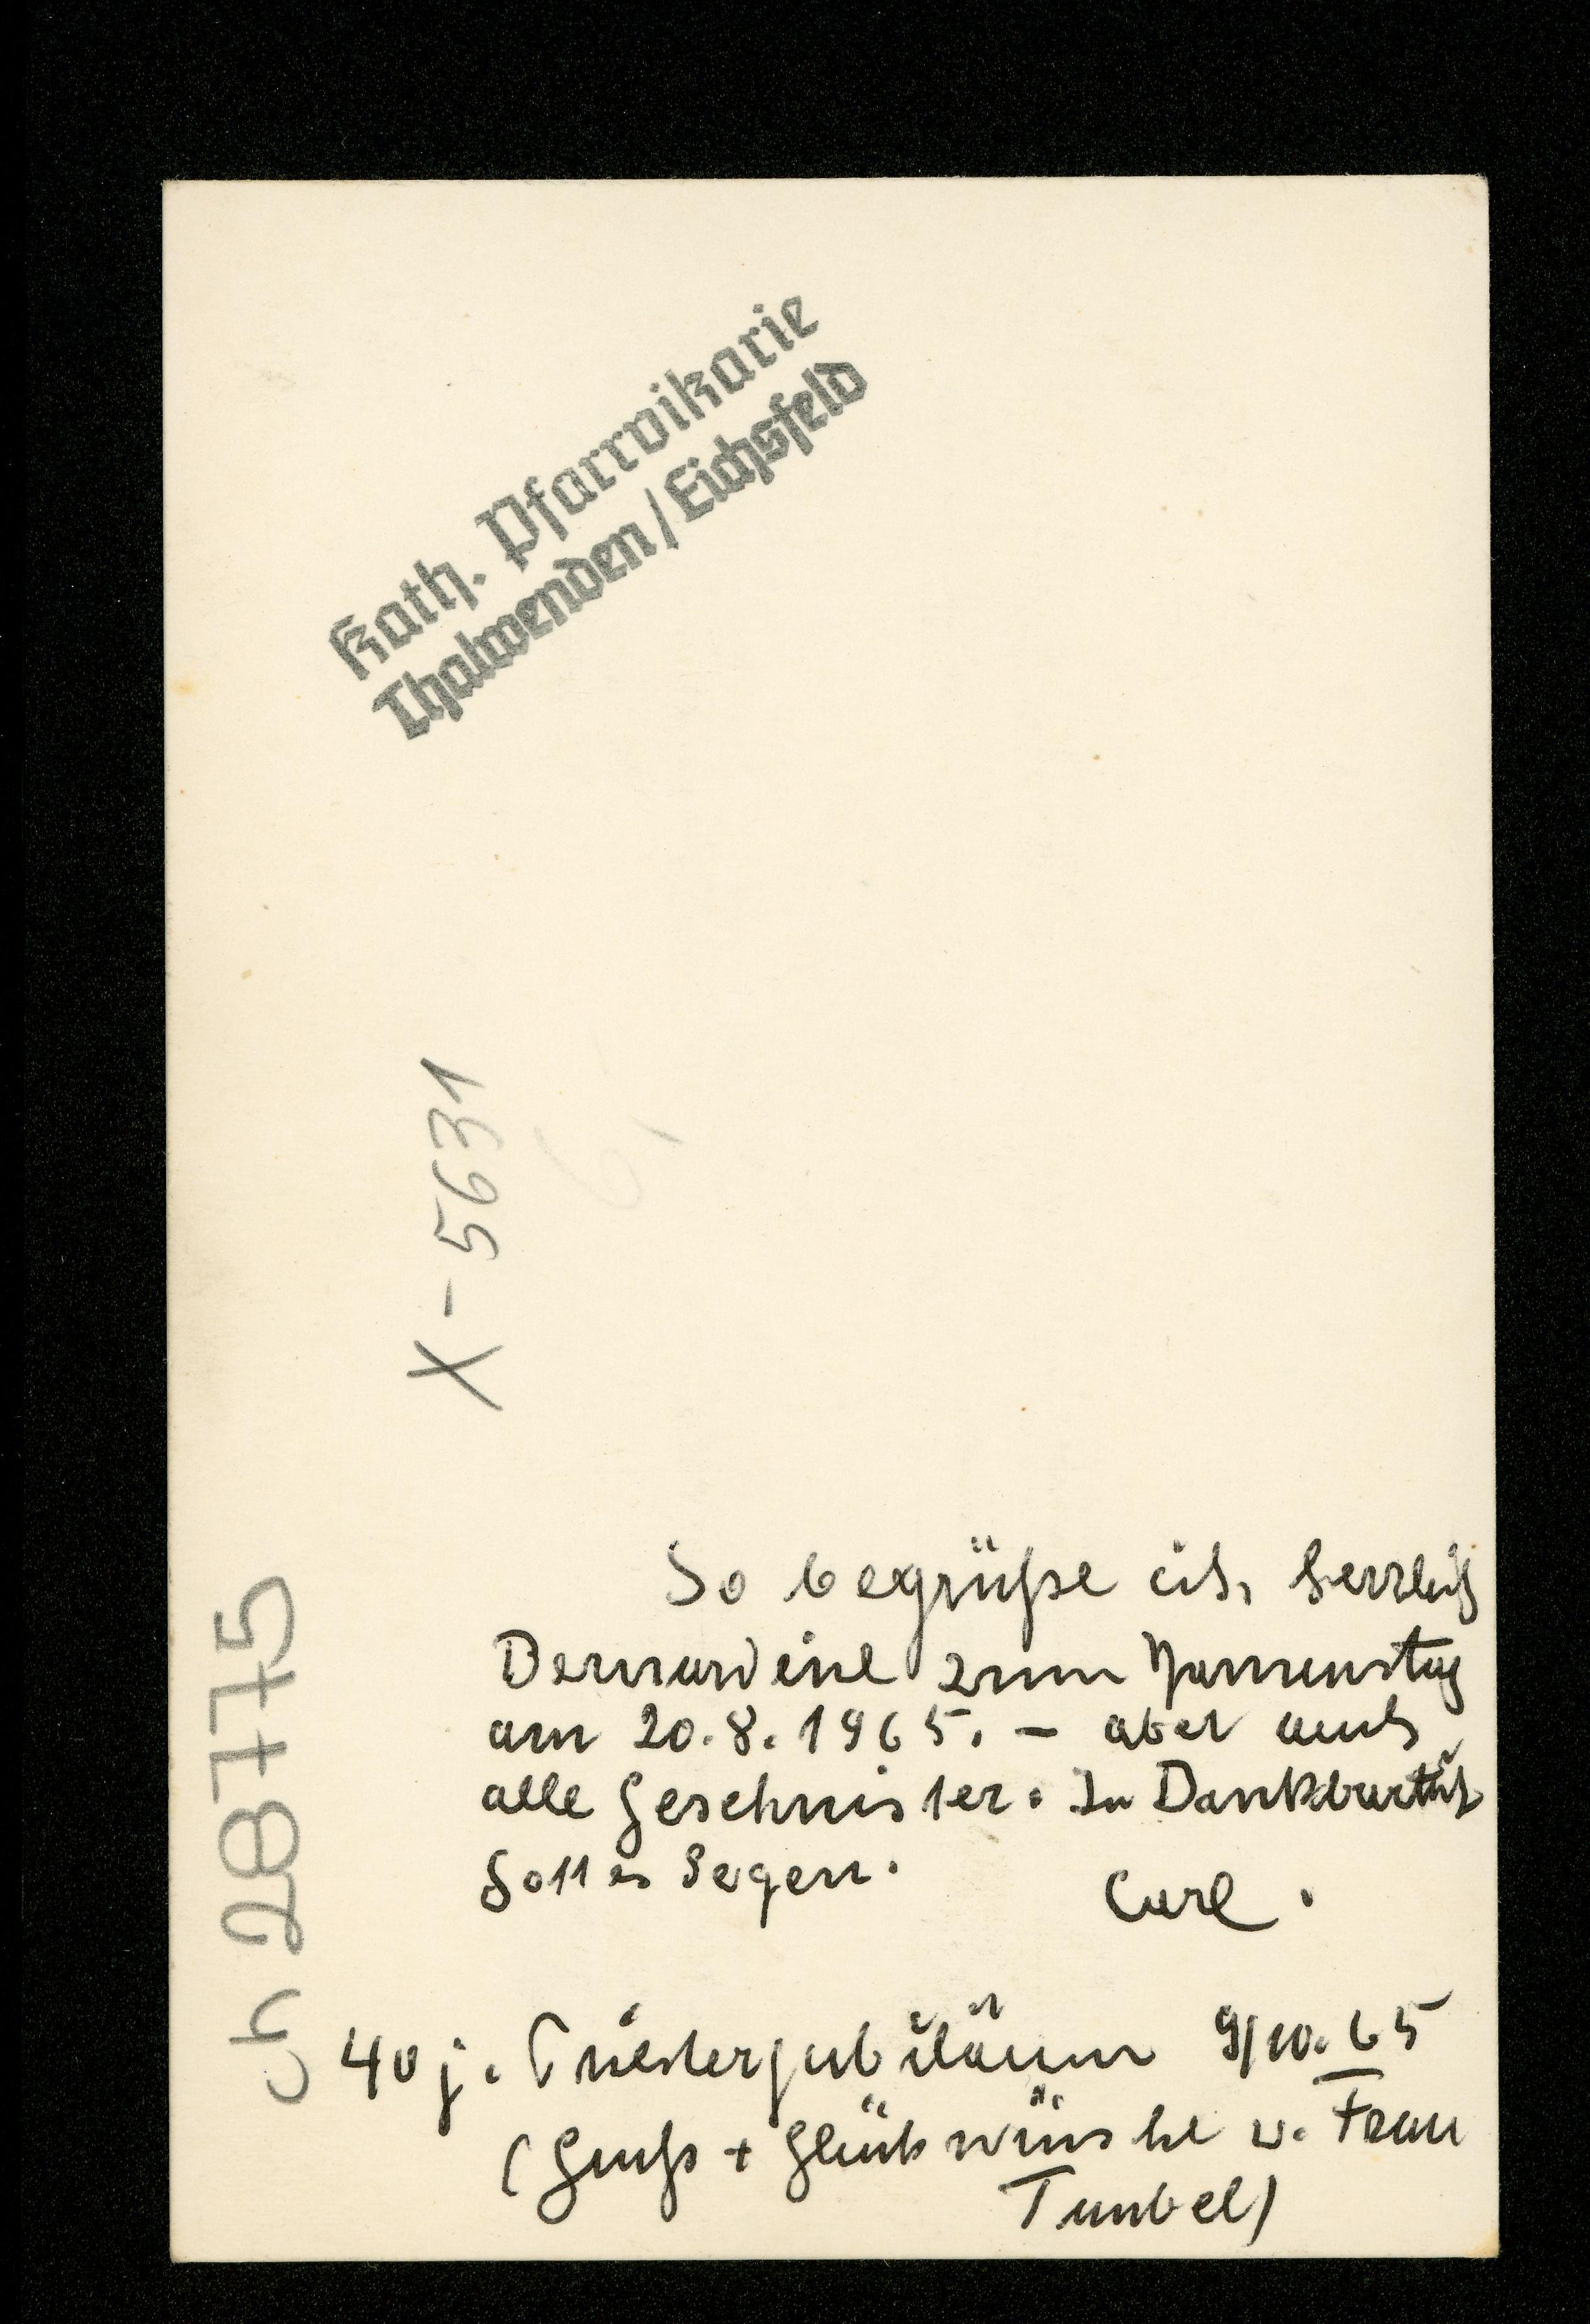 Kath. Pfarrvikarie
Thalwenden/Eichsfeld
X-5631
ch 28775
So begrüße ich herzlich
Bernardine zum Namenstag
am 20.8.1965. – aber auch
alle Geschwister. In Dankbarkeit
Gottes Segen.
Carl.
40 j. Priesterjubiläum 9/10.65
(Gruß + Glückwünsche v. Frau
)